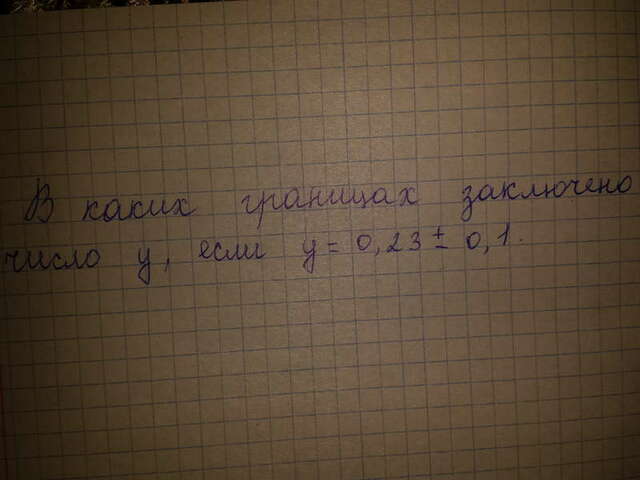 В каких границах заключено
число y, если y = 0,23 ± 0,1.